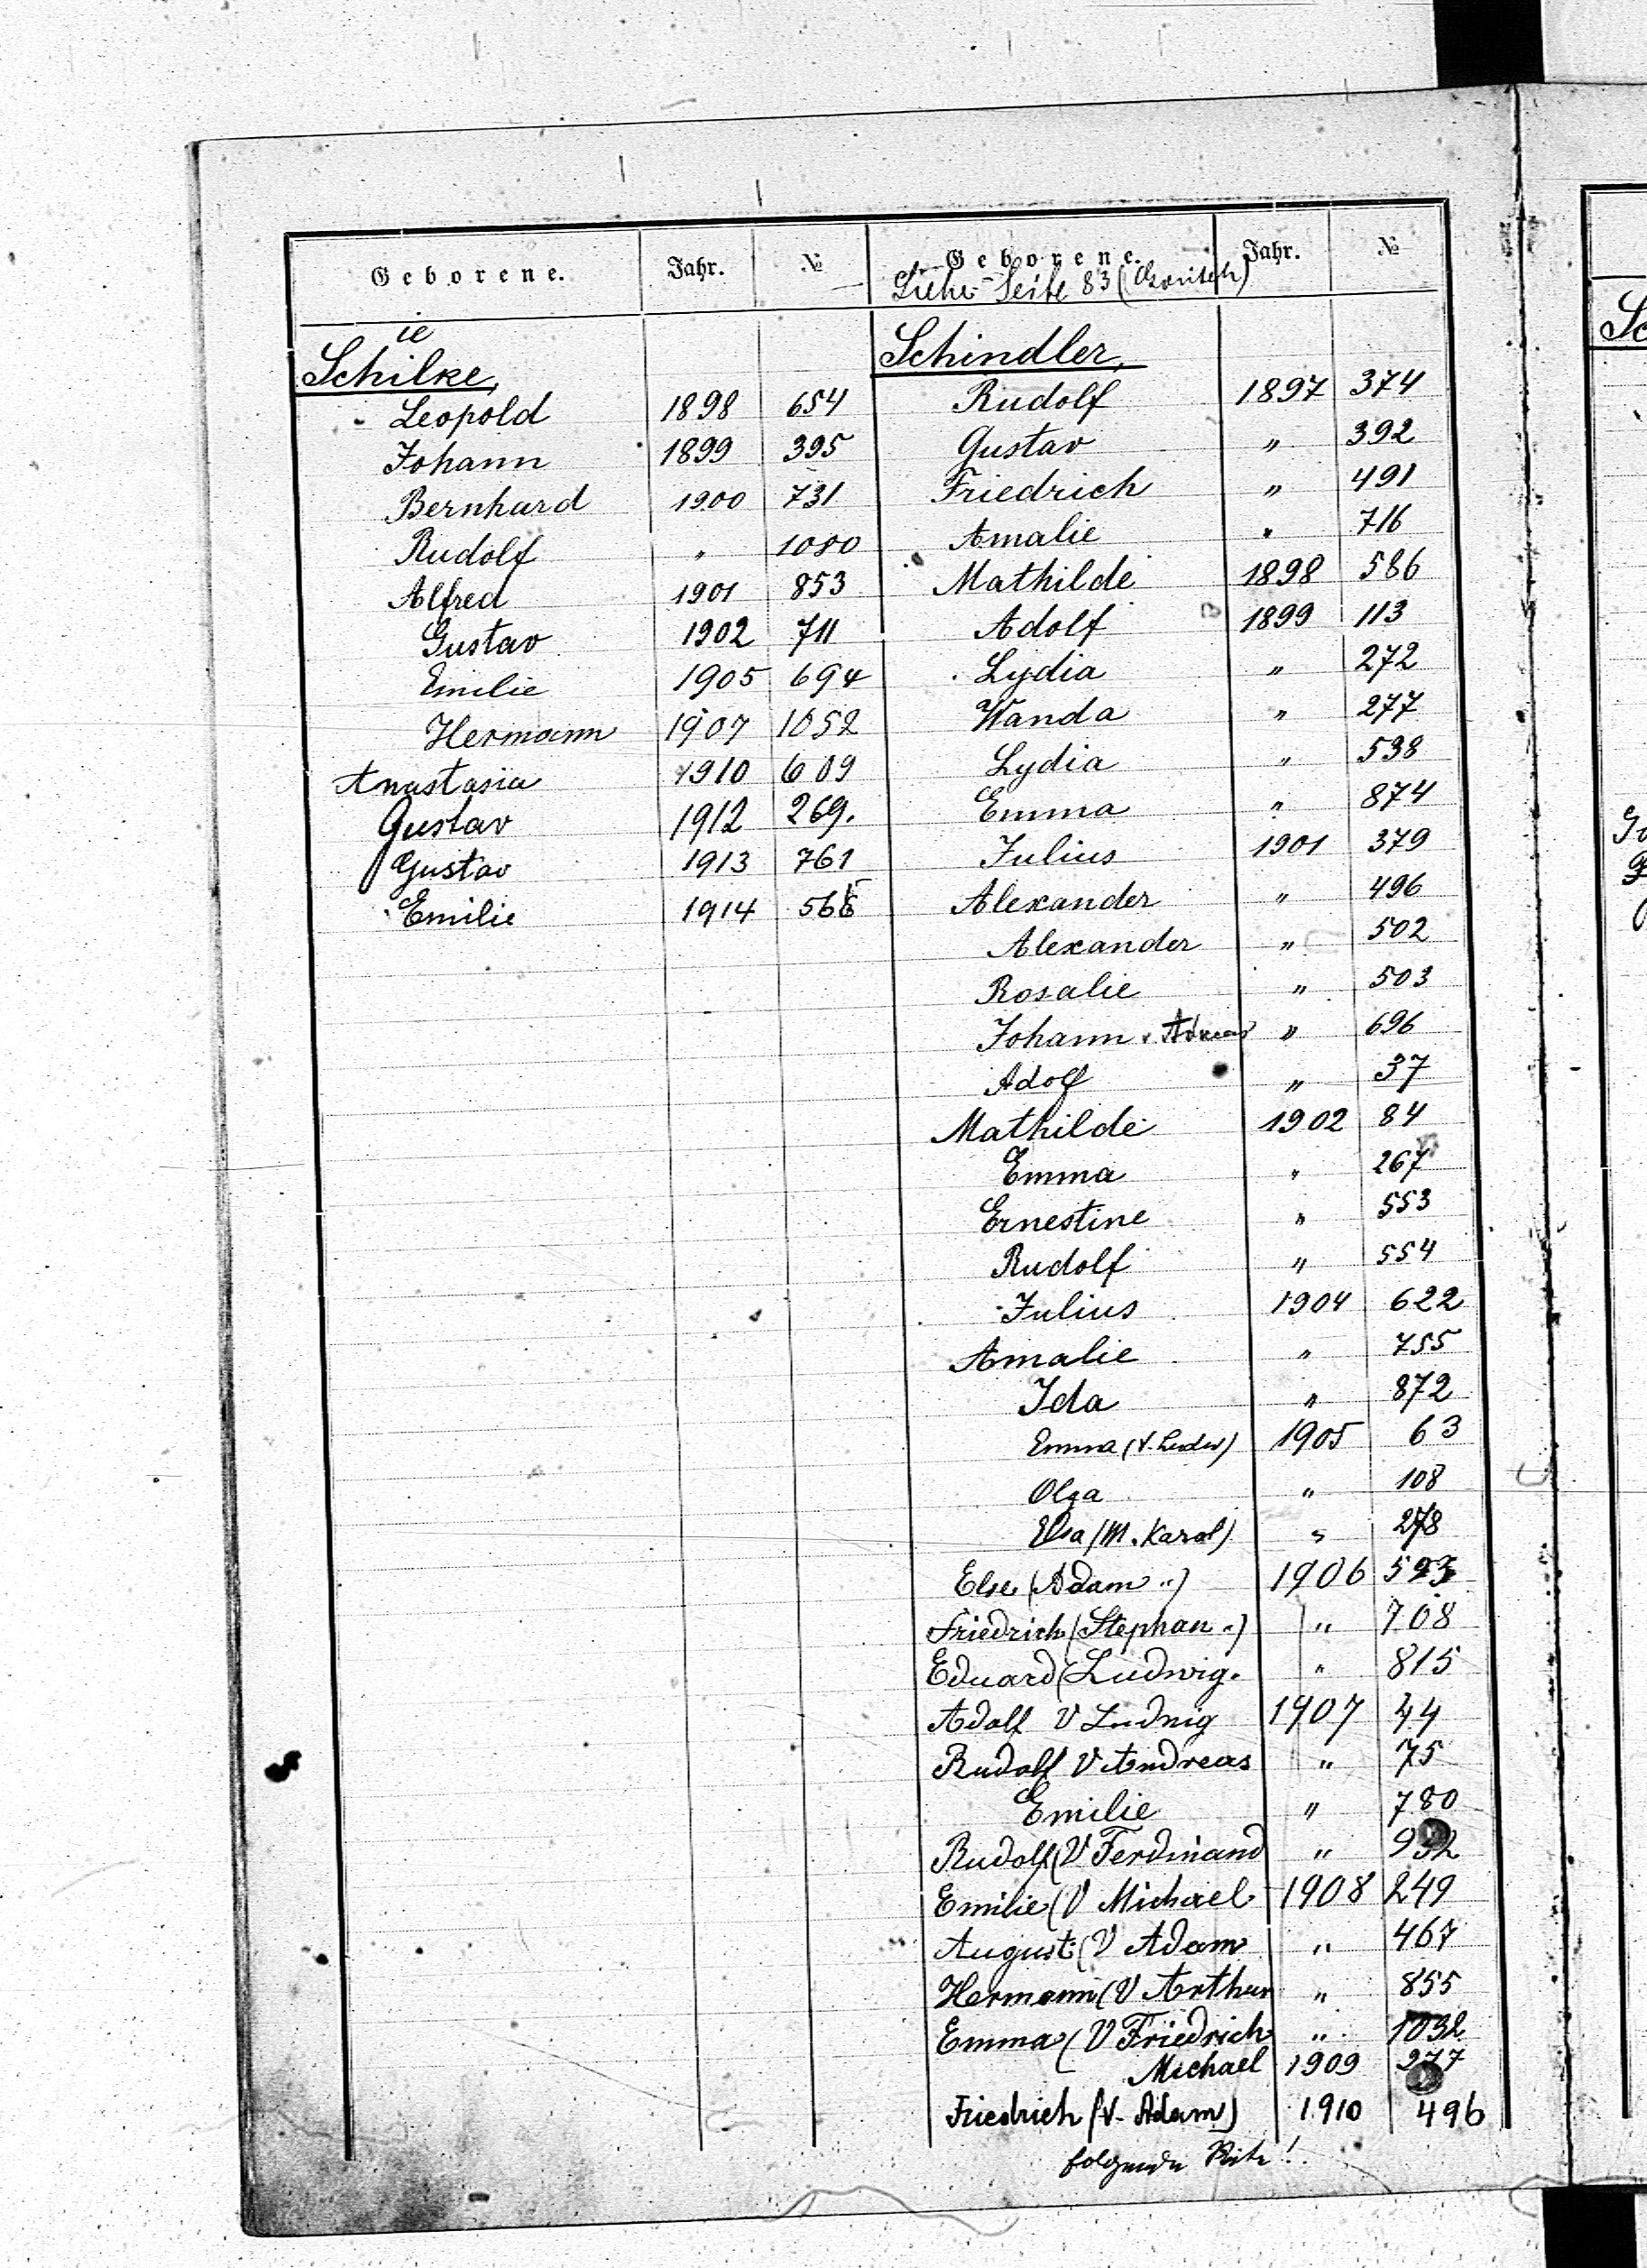 Geborene. Jahr. №
ie
Schilke,
Leopold 1898 654
Johann 1899 395
Bernhard 1900 731
Rudolf " 1080
Alfred 1901 853
Gustav 1902 711
Emilie 1905 694
Hermann 1907 1052
Anastasia 1910 609
Gustav 1912 269.
Gustav 1913 761
Emilie 1914 566
Geborene. Jahr. №
Siehe Seite 83
Schindler,
Rudolf 1897 374
Gustav " 392
Friedrich " 491
Amalie " 716
Mathilde 1898 586
Adolf 1899 113
Lydia " 272
Wanda " 277
Lydia " 538
Emma " 874
Julius 1901 379
Alexander " 496
Alexander " 502
Rosalie " 503
Johann " 696
Adolf " 37
Mathilde 1902 84
Emma " 267
Ernestine " 553
Rudolf " 554
Julius 1904 622
Amalie " 755
Ida " 872
Emma 1905 63
Olga " 108
Elsa (M. Karol) " 278
Else (Adam ") 1906 593
Friedrich (Stephan ") " 708
Eduard (Ludwig. " 815
Adolf V Ludwig 1907 44
Rudolf V Andreas " 75
Emilie " 780
Rudolf (V Ferdinand " 932
Emilie (V Michael 1908 249
August (V Adam " 467
Hermann (V Arthur " 855
Emma (V Friedrich " 1032
Michael 1909 277
Friedrich (V. Adam) 1910 496
folgende
Sc